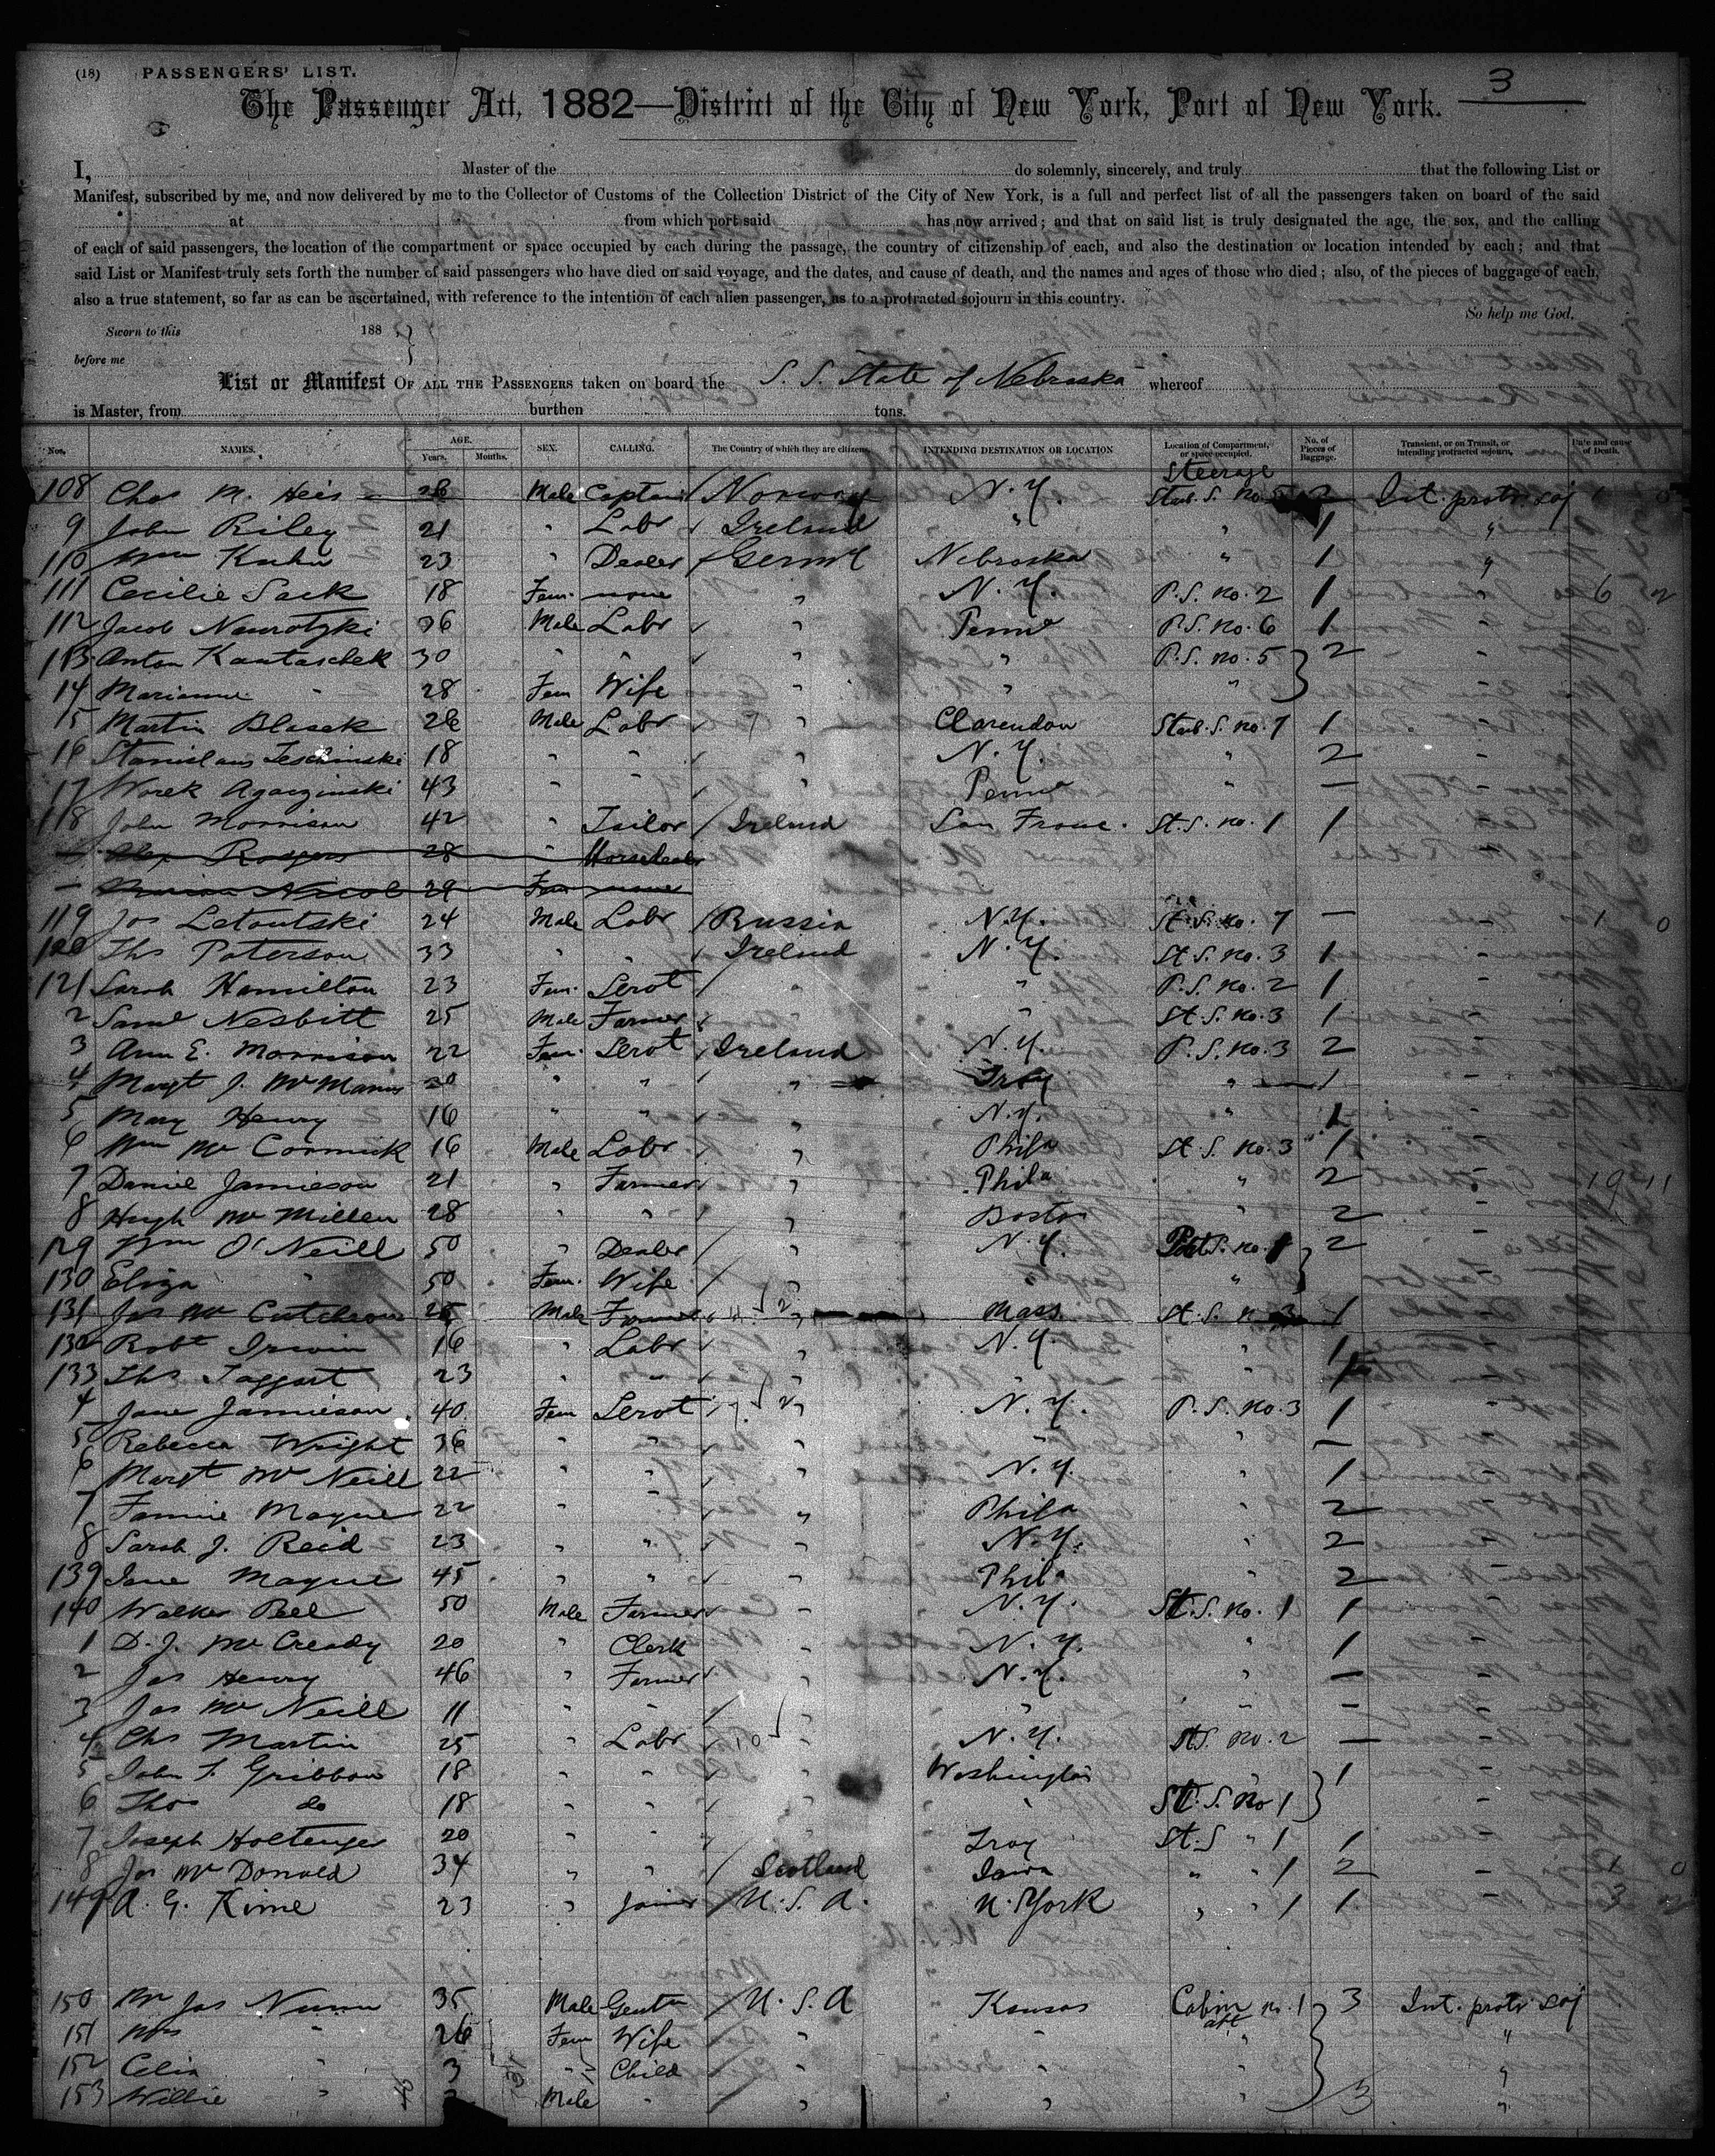 (18) PASSENGERS' LIST.
3
The Passenger Act, 1882—District of the City of New York, Port of New York.
I, Master of the do solemnly, sincerely, and truly that the following List or
Manifest, subscribed by me, and now delivered by me to the Collector of Customs of the Collection District of the City of New York, is a full and perfect list of all the passengers taken on board of the said
at from which port said has now arrived; and that on said list is truly designated the age, the sex, and the calling
of each of said passengers, the location of the compartment or space occupied by each during the passage, the country of citizenship of each, and also the destination or location intended by each; and that
said List or Manifest truly sets forth the number of said passengers who have died on said voyage, and the dates, and cause of death, and the names and ages of those who died; also, of the pieces of baggage of each,
also a true statement, so far as can be ascertained, with reference to the intention of each alien passenger, as to a protracted sojourn in this country.
So help me God.
Sworn to this 188 }
before me
List or Manifest OF ALL THE PASSENGERS taken on board the S. S. State of Nebraska whereof
is Master, from burthen tons.
Nos. NAMES. AGE. Years. Months. SEX. CALLING. The Country of which they are citizens. INTENDING DESTINATION OR LOCATION Location of Compartment, or space occupied. No. of Pieces of Baggage. Transient, or on Transit, or intending protracted sojourn. Date and cause of Death.
Steerage
108 Chas M. Heis 28 Male Captain Norway N.Y. Starb. S. No. 5 2 Int. protr. soj 1 0
9 John Riley 21 " Labr Ireland " " 1 "
110 Wm Kuhn 23 " Dealer Germy Nebraska " 1 "
111 Cecilie Sack 18 Fem. none " N.Y. P.S. No. 2 1 " 6 2
112 Jacob Nawrotzki 36 Male Labr " Penna P.S. No. 6 1
113 Anton Kantaschek 30 " " " " P.S. No. 5 } 2
14 Marianne " 28 Fem Wife " " "
15 Martin Blasek 26 Male Labr 7 " Clarendon Starb. S. No. 7 1
16 Stanislaus Leschinski 18 " " " N.Y. " 2
17 Worek Agaczinski 43 " " " Penna " —
118 John Morrison 42 " Tailor Ireland San Franc. St. S. No. 1 1
Alex Rodgers 28 " Horsedealer
— Nicol 29 Fem none
119 Jos Letoutski 24 Male Labr Russia N.Y. St. S. No. 7 — 1 0
120 Ths Paterson 33 " " Ireland N.Y. St. S. No. 3 1
121 Sarah Hamilton 23 Fem. Servt " " P.S. No. 2 1
2 Saml Nesbitt 25 Male Farmer " St. S. No. 3 1
3 Ann E. Morrison 22 Fem. Servt Ireland N.Y. P.S. No. 3 2
4 Margt J. McManus 20 " " " Troy " 1
5 Mary Henry 16 " " " N.Y. " 1
6 Wm McCormick 16 Male Labr " Phila St. S. No. 3 1
7 Daniel Jamieson 21 " Farmer " Phila " 2 19 11
8 Hugh McMillen 28 " " " Boston 2
129 Wm O'Neill 50 " Dealer " N.Y. P.S. No. 1 } 2
130 Eliza " 50 Fem. Wife " " "
131 Jas McCutcheon 25 Male Farmer " Mass St. S. No. 3 1
132 Robt Irwin 16 " Labr " N.Y. " 1
133 Ths Taggart 23 " " " " " 1
4 Jane Jamieson 40 Fem Servt " N.Y. P.S. No. 3 1
5 Rebecca Wright 36 " " " " " —
6 Margt McNeill 22 " " " N.Y. " 1
7 Fannie Mayne 22 " " " Phila " 2
8 Sarah J. Reid 23 " " " N.Y. " 2
139 Jane Mayne 45 " " " Phila 2
140 Walker Bell 50 Male Farmer " N.Y. St. S. No. 1 1
1 D. J. McCready 20 " Clerk " N.Y. " 1
2 Jas Henry 46 " Farmer " N.Y. " —
3 Jas McNeill 11 " " " " " —
4 Chs Martin 25 " Labr 10 N.Y. St. S. No. 2 —
5 John F. Gribbon 18 " " " Washington " } 1
6 Thos do 18 " " " " St. S. No 1
7 Joseph Holtenger 20 " " Troy St. S " 1 1
8 Jas McDonald 34 " " Scotland Iowa " " 1 2 1 0
149 A. G. Kime 23 " Joiner U.S.A. N. York " " 1 1 3 2
150 Mr Jas Nunn 35 Male Gentn U.S.A Kansas Cabin No. 1 aft } 3 Int. protr soj
151 Mrs " 26 Fem Wife " " " "
152 Celia " 3 " Child " " " "
153 Willie " Male " " " " 3 "